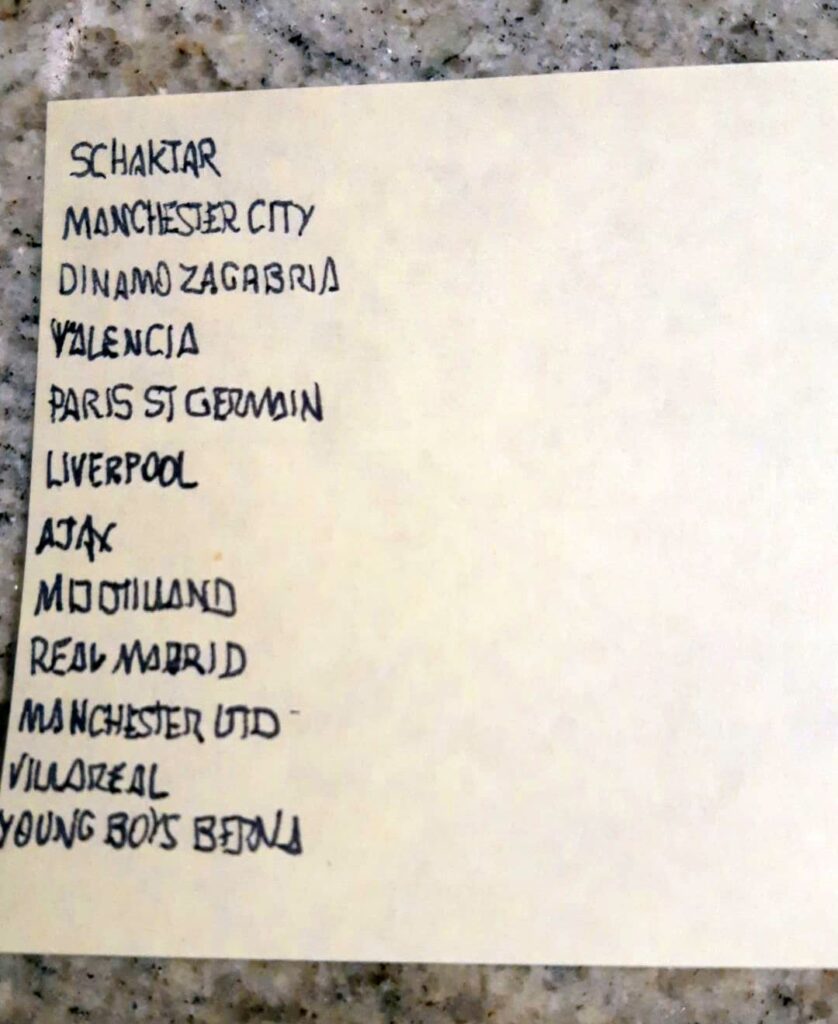 SCHAKTAR
MANCHESTER CITY
DINAMO ZAGABRIA
VALENCIA
PARIS ST GERMAIN
LIVERPOOL
AJAX
MIDTILLAND
REAL MADRID
MANCHESTER UTD
VILLAREAL
YOUNG BOYS BERNA